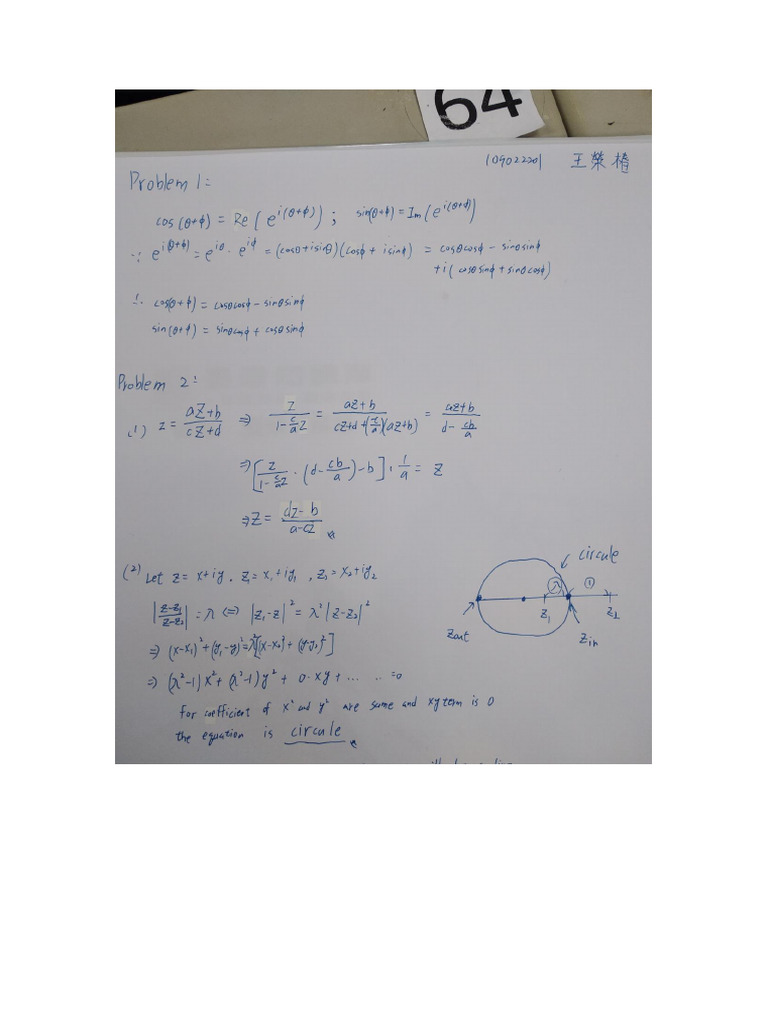 64
109022201 王榮椿
Problem 1:
cos(θ+φ) = Re(e^{i(θ+φ)}) ; sin(θ+φ) = Im(e^{i(θ+φ)})
∵ e^{i(θ+φ)} = e^{iθ} · e^{iφ} = (cosθ + isinθ)(cosφ + isinφ) = cosθcosφ - sinθsinφ
+ i(cosθsinφ + sinθcosφ)
∴ cos(θ+φ) = cosθcosφ - sinθsinφ
sin(θ+φ) = sinθcosφ + cosθsinφ
Problem 2:
(1) z = (aZ+b)/(cZ+d) ⇒ z/(1-(c/a)z) = (aZ+b)/(cZ+d+(-c/a)(aZ+b)) = (aZ+b)/(d-cb/a)
⇒ [z/(1-(c/a)z) · (d-cb/a) - b] · 1/a = Z
⇒ Z = (dz-b)/(a-cz)
(2) Let z = x+iy, z₁ = x₁+iy₁, z₂ = x₂+iy₂
|(z-z₁)/(z-z₂)| = λ ⟺ |z₁-z|² = λ²|z-z₂|²
⇒ (x-x₁)² + (y₁-y)² = λ²[(x-x₂)² + (y-y₂)²]
⇒ (λ²-1)x² + (λ²-1)y² + 0·xy + ... .. = 0
for coefficient of x² and y² are same and xy term is 0
the equation is circule
circule
λ ①
z₁ z₂
Zout Zin